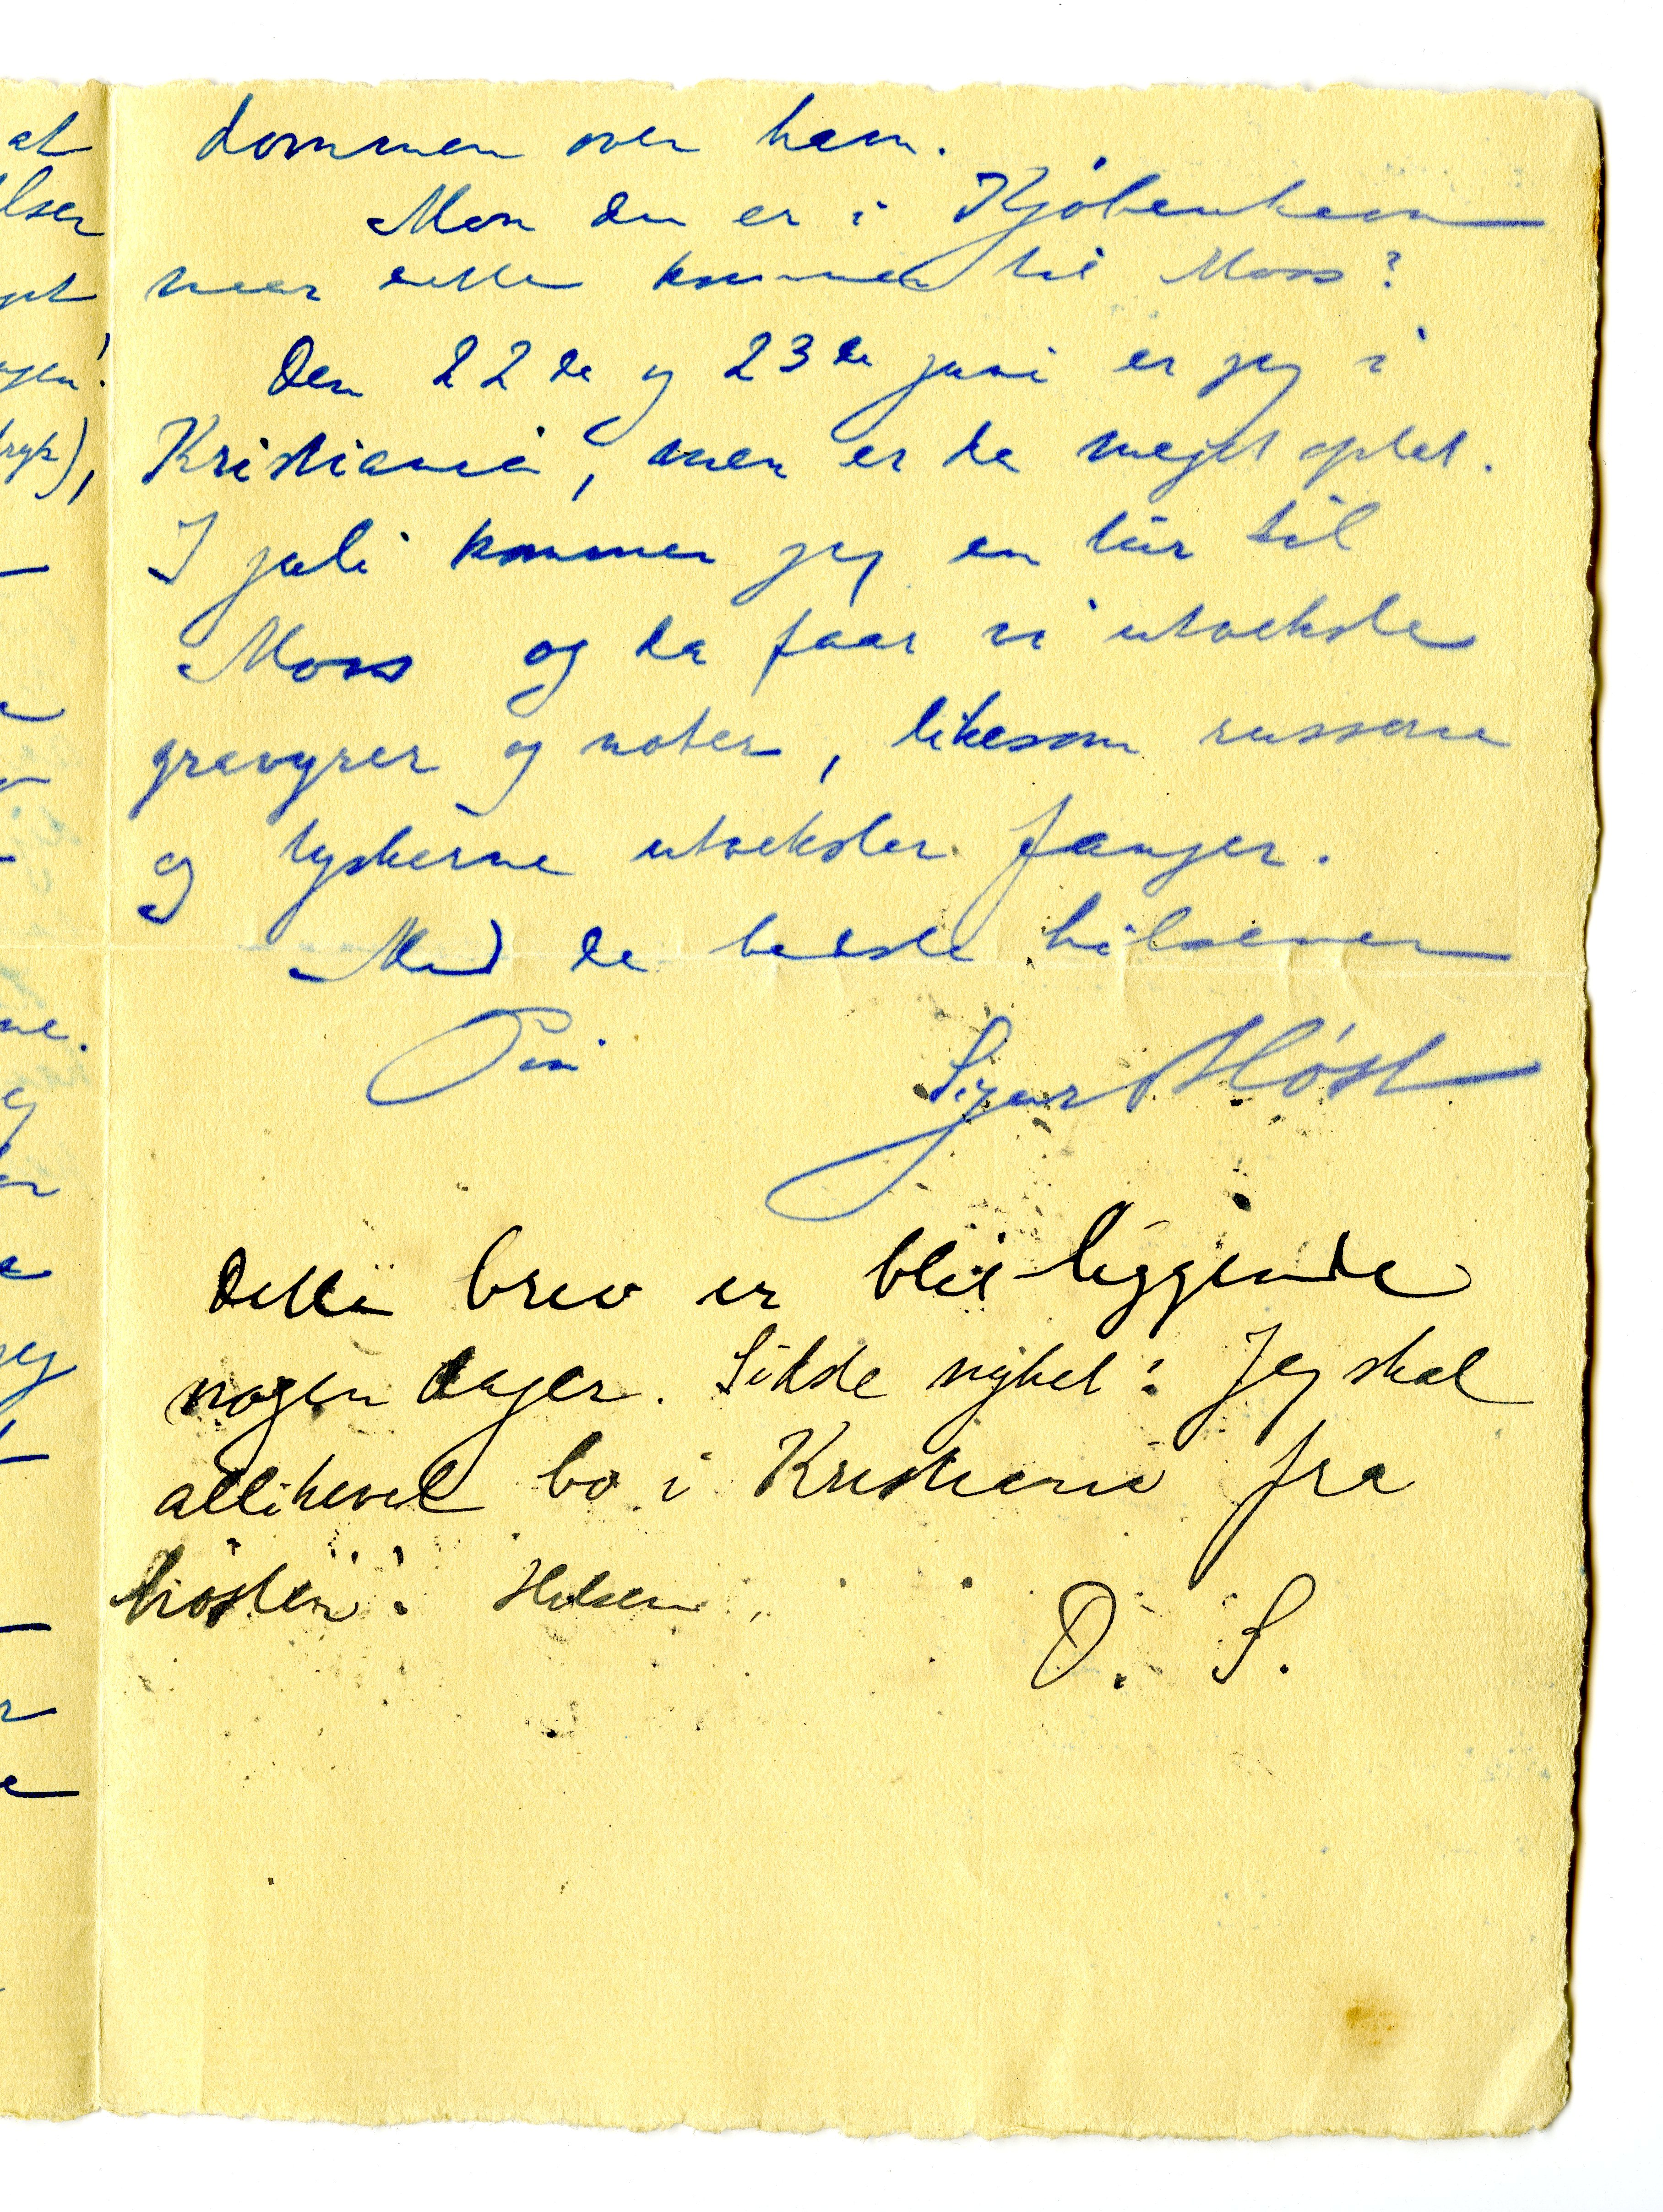 dommen over ham.
Mon du er i Kjøbenhavn
naar dette kommer til Moss?
Den 22de og 23de juni er jeg i
Kristiania, men er da meget optat.
I juli kommer jeg en tur til
Moss og da faar vi utveksle
gravyrer og noter, likesom russerne
og tyskerne utveksler fanger.
Med de bedste hilsener
Din Sigurd Høst
Dette brev er blit liggende
nogen dager. Sidste nyhet: Jeg skal
allikevel bo i Kristiania fra
høsten! Hilsen,
D. S.